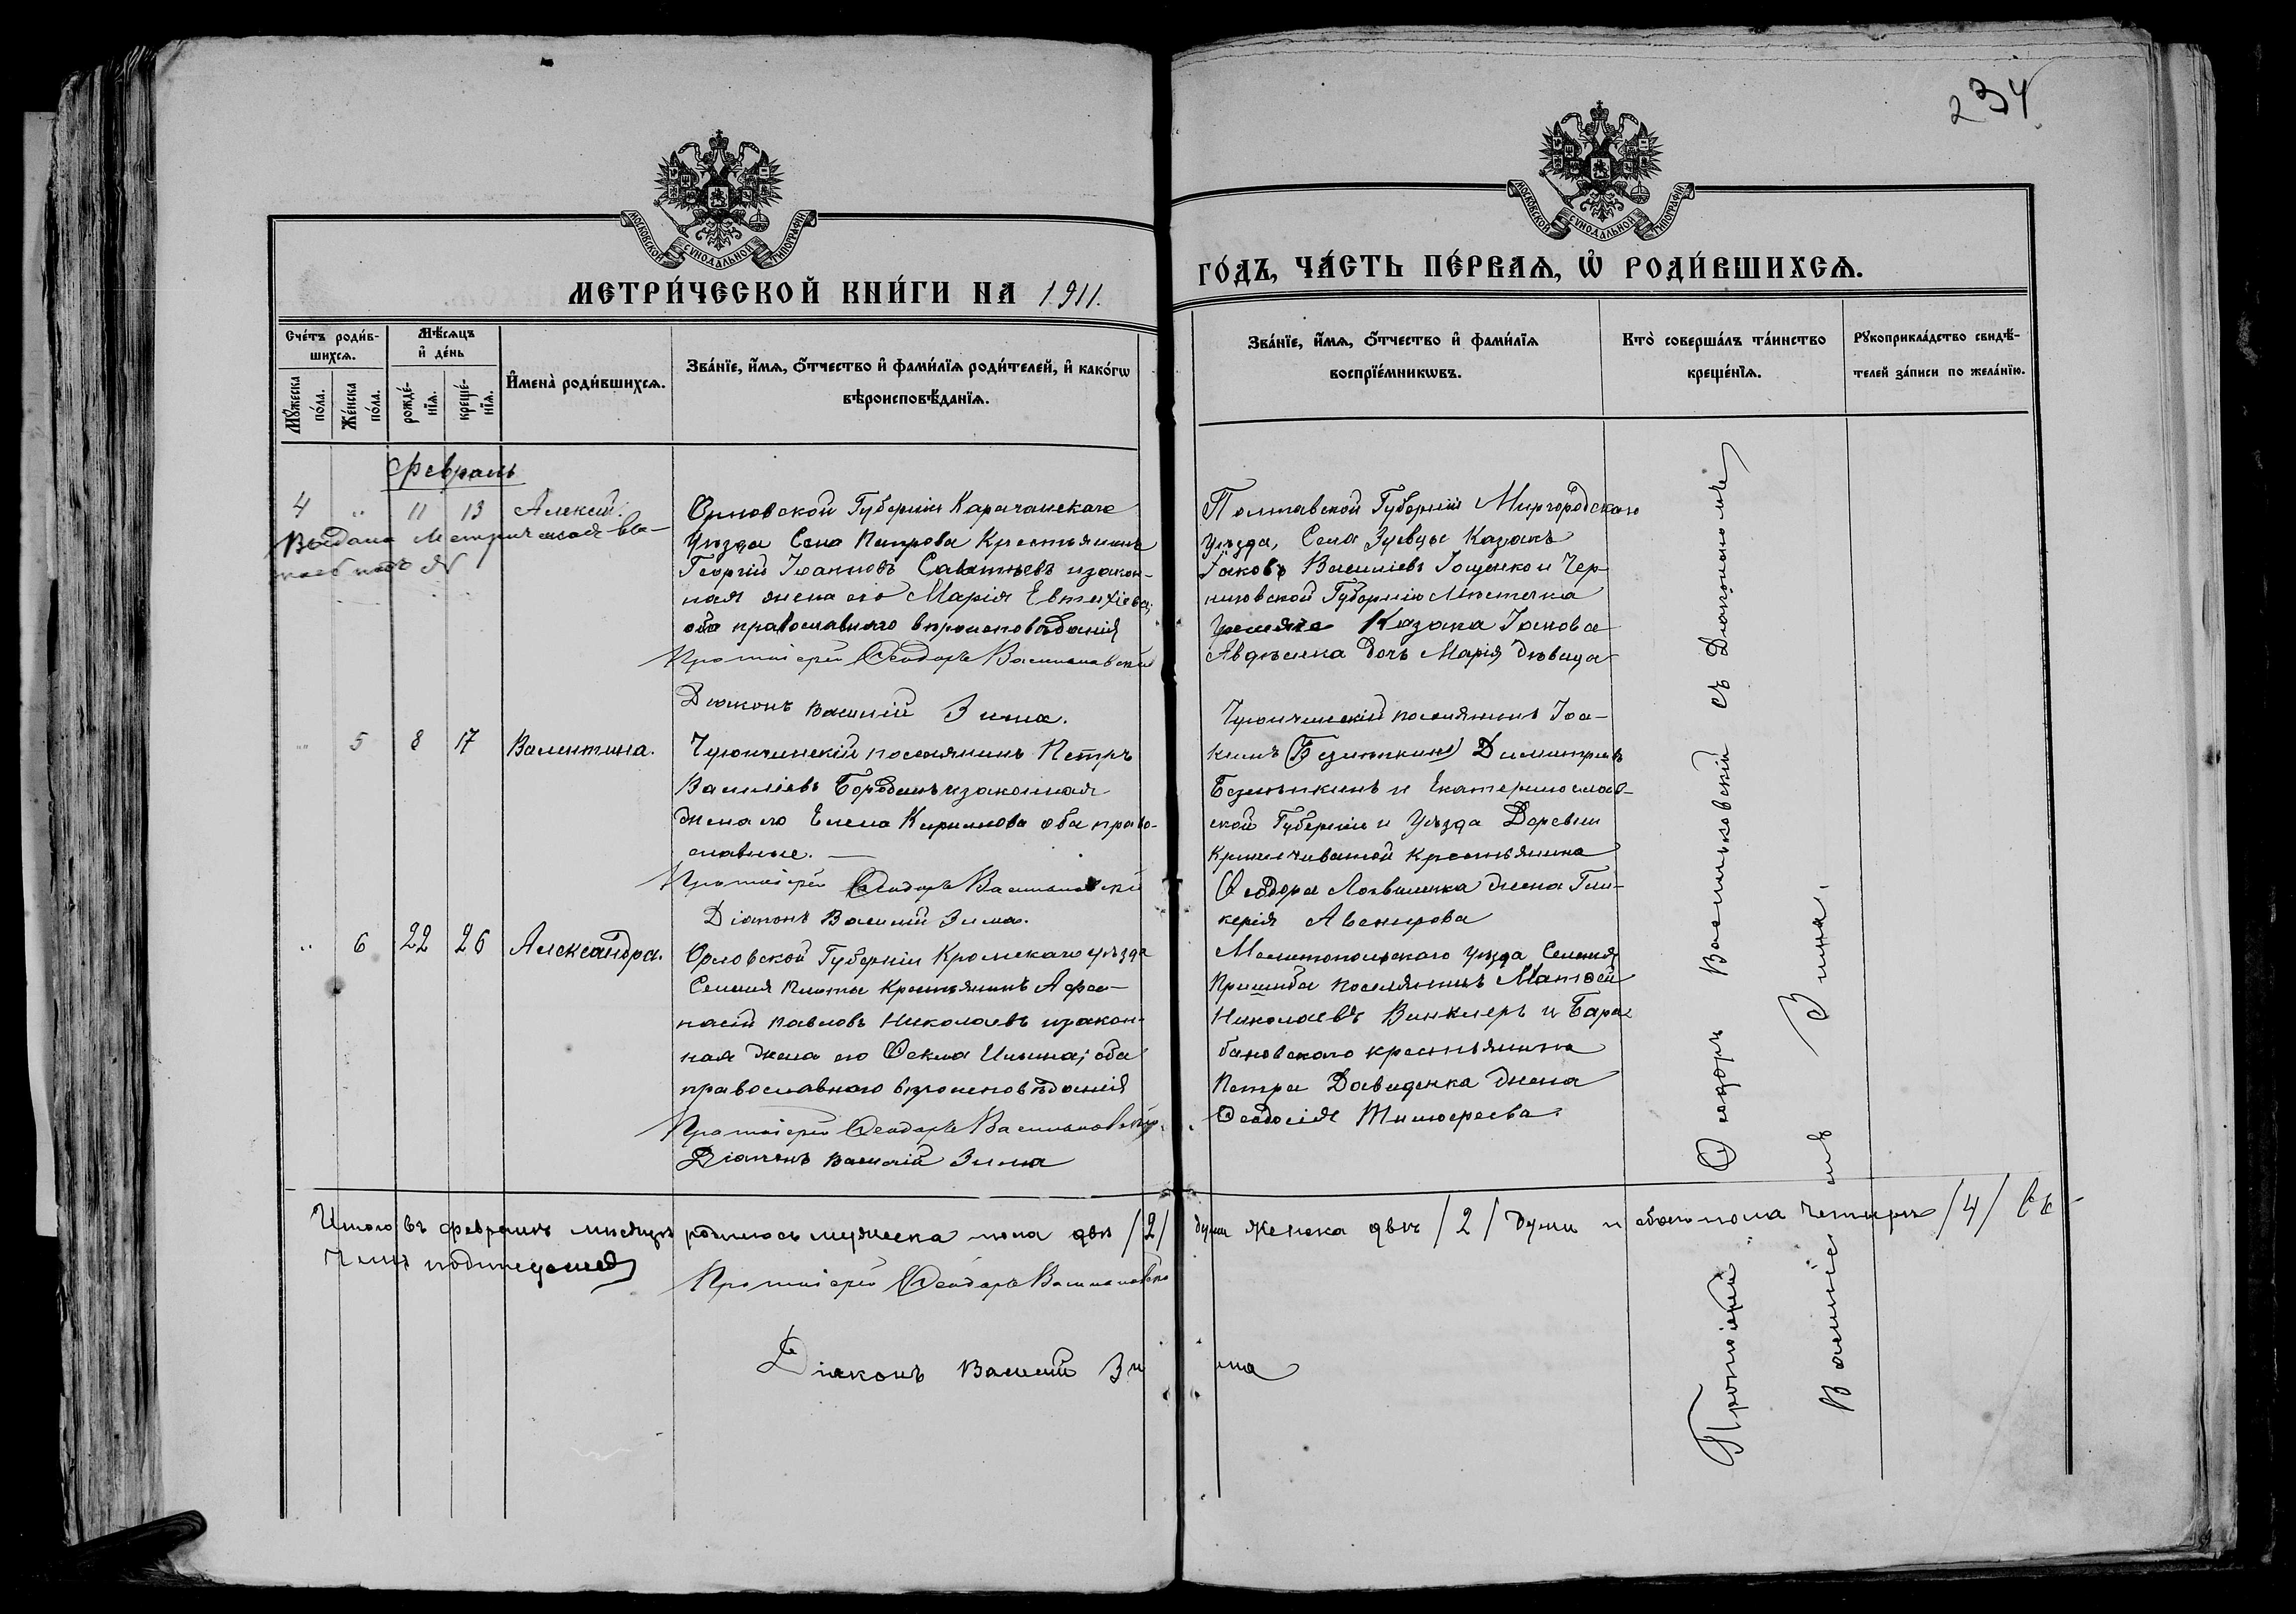 234
МОСКОВСКОЙ СѴНОДАЛЬНОЙ ТИПОГРАФІИ
МОСКОВСКОЙ СѴНОДАЛЬНОЙ ТИПОГРАФІИ
МЕТРИ́ЧЕСКОЙ КНИ́ГИ НА 1911.
ГО́ДЪ, ЧА́СТЬ ПЕ́РВАѦ, Ѡ҆ РОДИ́ВШИХСѦ.
Сче́тъ роди́в-
шихсѧ.
Мꙋ́жеска по́ла.
Же́нска по́ла.
Мѣ́сѧцъ
и҆ де́нь
рожде́-
нїѧ.
креще́-
нїѧ.
И҆мена̀ роди́вшихсѧ.
Зва́нїе, и҆́мѧ, ѻ҆́тчество и҆ фами́лїѧ роди́телей, и҆ како́гѡ
вѣроисповѣ́данїѧ.
Зва́нїе, и҆́мѧ, ѻ҆́тчество и҆ фами́лїѧ
воспрїе́мникѡвъ.
Кто̀ соверша́лъ та́инство
креще́нїѧ.
Рꙋкоприкла́дство свидѣ́-
телей за́писи по жела́нїю.
Февраль
4 " 11 13 Алексій.
Выдана Метрическая вы-
Орловской Губерніи Карачаевскаго
уѣзда Села Петрова Крестьянинъ
Георгій Іоанновъ Савитневъ и закон-
ная жена его Марія Евтихіева;
оба православнаго вѣроисповѣданія
Протоіерей Ѳеодоръ Васильковскій
Діаконъ Василій Зима.
Полтавской Губерніи Миргородскаго
уѣзда, Села Зуевцы Казакъ
Іаковъ Василіевъ Гощенко и Чер-
ниговской Губерніи Мѣстечка
Казака Іакова
дочь Марія дѣвица
" 5 8 17 Валентина.
Чугончинскій поселянинъ Петръ
Василіевъ Бородинъ и законная
жена его Елена Кириллова оба право-
славные.
Протоіерей Ѳеодоръ Васильковскій
Діаконъ Василій Зима.
Чугончинскій поселянинъ Іоа-
кимъ (Безпяткинъ) Димитріевъ
Безпяткинъ и Екатеринослав-
ской Губерніи и Уѣзда Деревни
Криничеватой Крестьянина
Ѳеодора Логвиненка жена Гли-
керія Авенирова
" 6 22 26 Александра.
Орловской Губерніи Кромскаго уѣзда
Селенія Плоты Крестьянинъ Афа-
насій Павловъ Николаевъ и закон-
ная жена его Ѳекла Ильина; оба
православнаго вѣроисповѣданія
Протоіерей Ѳеодоръ Васильковскій
Діаконъ Василій Зима
Мелитопольскаго уѣзда Селенія
Пришиба поселянинъ Матѳей
Николаевъ Винклеръ и Бара-
бановскаго крестьянина
Петра Давиденка жена
Ѳеодосія Тимоѳеева.
Протоіерей Ѳеодоръ Васильковскій съ Діакономъ
Василіемъ Зима.
Итого въ февралѣ мѣсяцѣ родилось мужеска пола двѣ /2/ души женска двѣ /2/ души и обоего пола четыре /4/ Въ
чемъ и подписуемся
Протоіерей Ѳеодоръ Васильковскій
Діаконъ Василій Зима